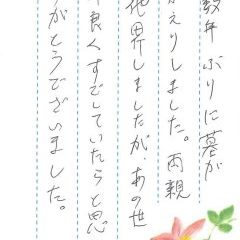 数年ぶりに墓が
えりしました。両親
他界しましたが、あの世
良くすごしていたらと思
がとうございました。